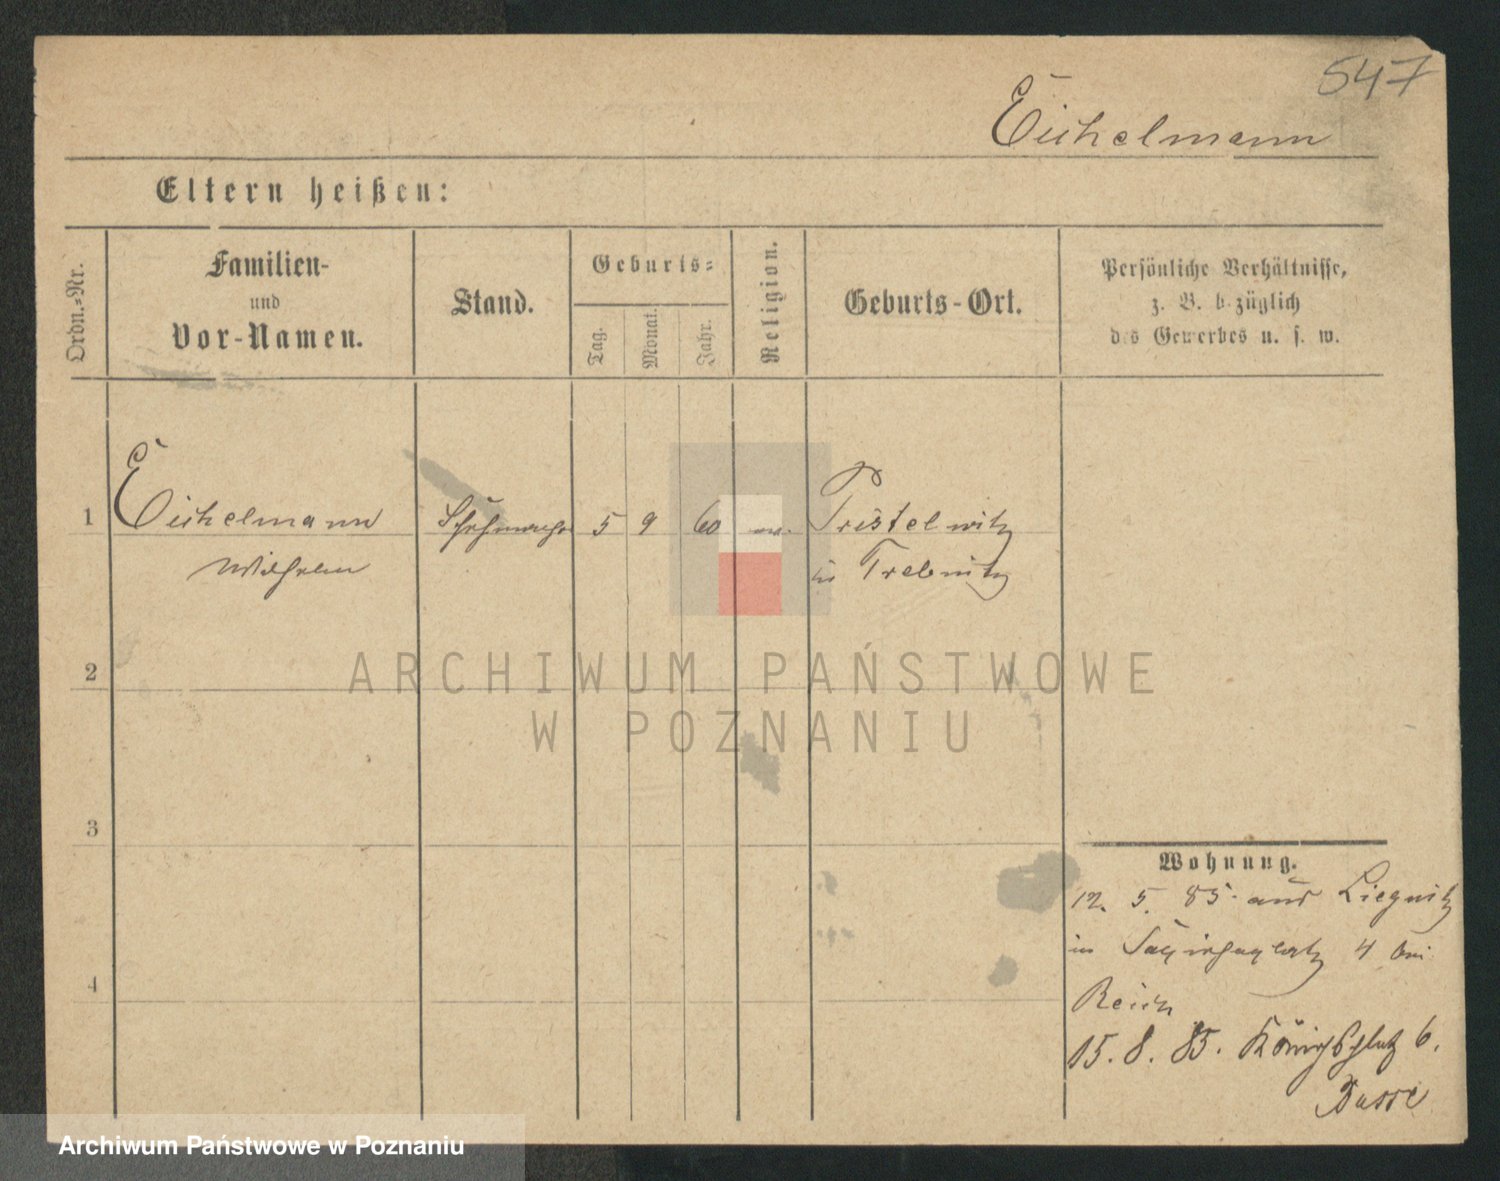 547
Eichelmann
Eltern heißen:
Ordn.-Nr.
Familien-
und
Vor-Namen.
Stand.
Geburts-
Tag.
Monat.
Jahr.
Religion.
Geburts-Ort.
Persönliche Verhältnisse,
z. B. bezüglich
des Gewerbes u. s. w.
1 Eichelmann 5 9 60 Pristelwitz
Wilhelm in Trebnitz
2
3
4
Wohnung.
12. 5. 85 aus Liegnitz
in 4 bei
Reich
15. 8. 85. Königsplatz 6.
Busse
ARCHIWUM PAŃSTWOWE
W POZNANIU
Archiwum Państwowe w Poznaniu